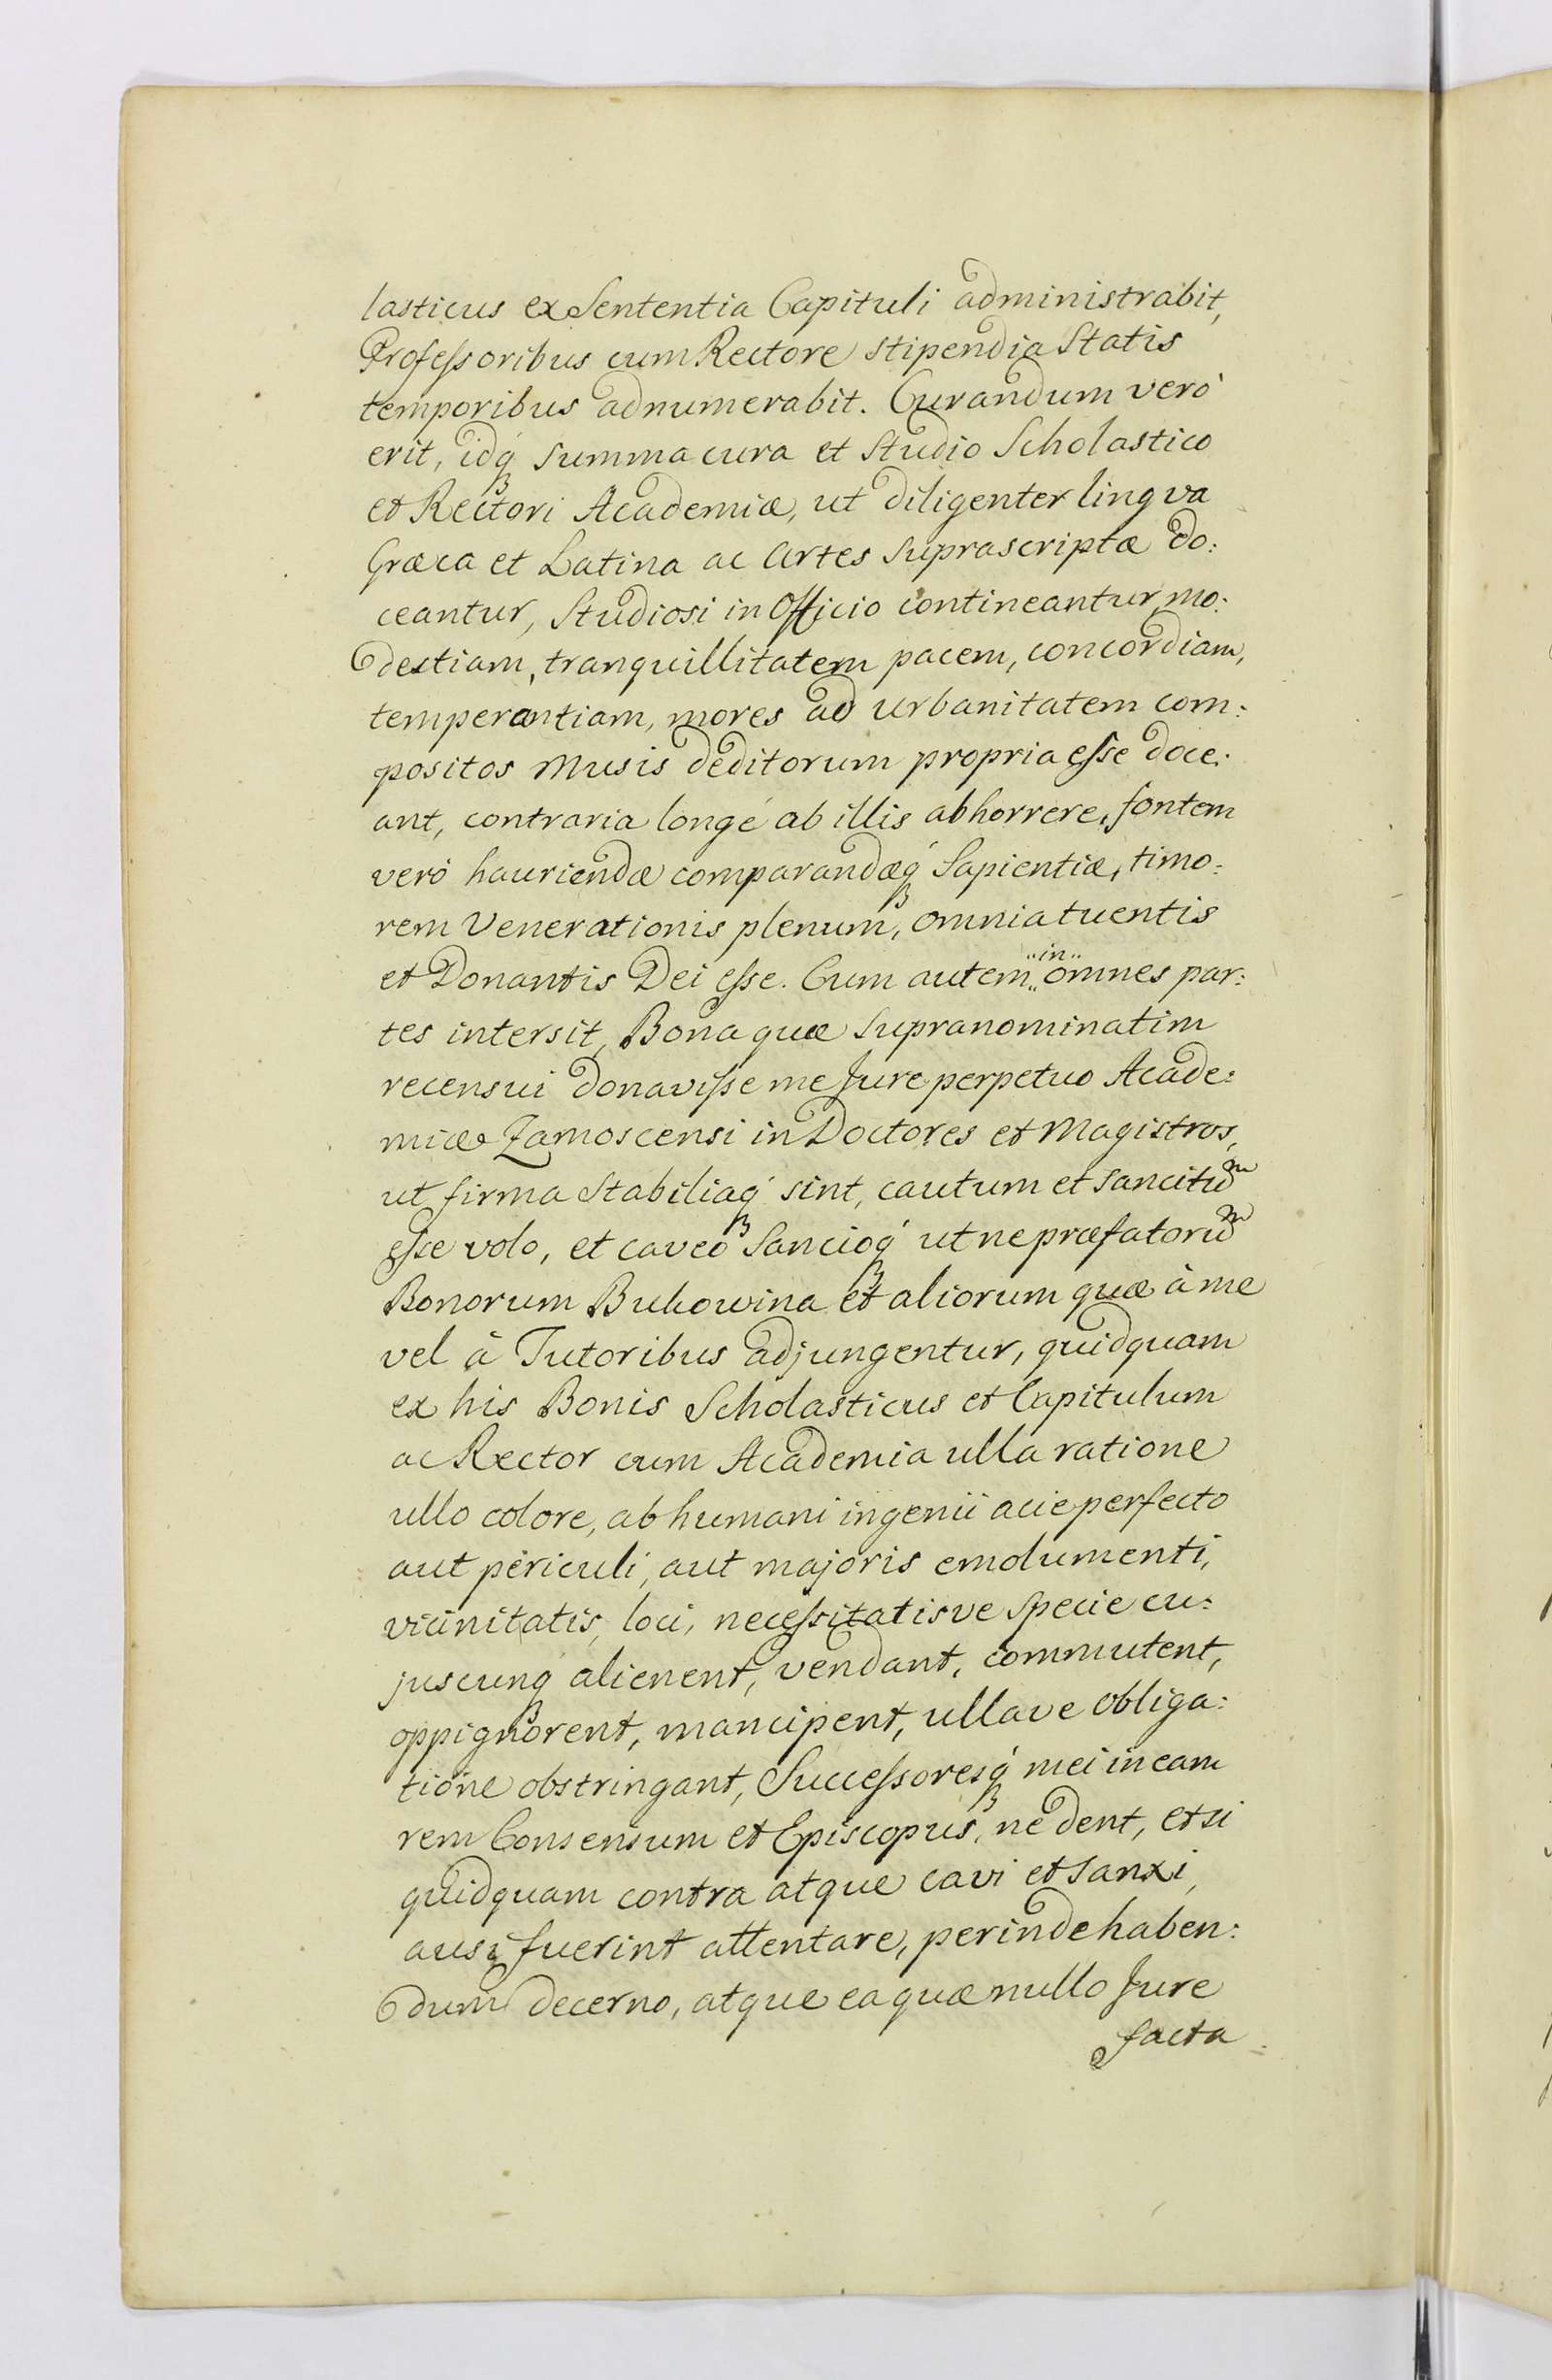 lasticus ex Sententia Capituli administrabit,
Professoribus cum Rectore stipendia Statis
temporibus adnumerabit. Curandum verò
erit, idq́ꝫ summa cura et Studio Scholastico
et Rectori Academiæ, ut diligenter lingva
Græca et Latina ac Artes suprascriptæ do:
ceantur, Studiosi in Officio contineantur mo:
destiam, tranquillitatem pacem, concordiam,
temperantiam, mores ad urbanitatem com:
positos Musis deditorum propria esse doce:
ant, contraria longé ab illis abhorrere, fontem
veró hauriendæ comparandæq́ꝫ Sapientiæ, timo:
rem Venerationis plenum, omnia tuentis
et Donantis Dei esse. Cum autem in omnes par:
tes intersit, Bona quæ supranominatim
recensui donavisse me Jure perpetuo Acade:
miæ Zamoscensi in Doctores et Magistros,
ut firma stabiliaq́ꝫ sint, cautum et sancitũm
esse volo, et caveo Sancioq́ꝫ ut ne præfatorũm
Bonorum Bukowina et aliorum quæ à me
vel à Tutoribus adjungentur, quidquam
ex his Bonis Scholasticus et Capitulum
ac Rector cum Academia ulla ratione
ullo colore, ab humani ingenii acie perfecto
aut periculi, aut majoris emolumenti,
vicinitatis, loci, necessitatisve specie cu:
juscunq́ꝫ alienent, vendant, commutent,
oppignorent, mancipent, ullave obliga:
tione obstringant, Successoresq́ꝫ mei in eam
rem Consensum et Episcopus, ne dent, et si
quidquam contra atque cavi et sanxi,
ausi fuerint attentare, perinde haben:
dum decerno, atque ea quæ nullo Jure
facta